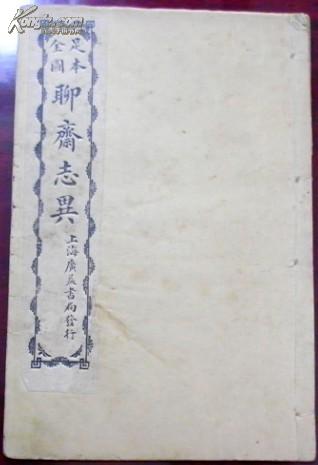 足本
全圖
聊齋志異
上海廣益書局發行